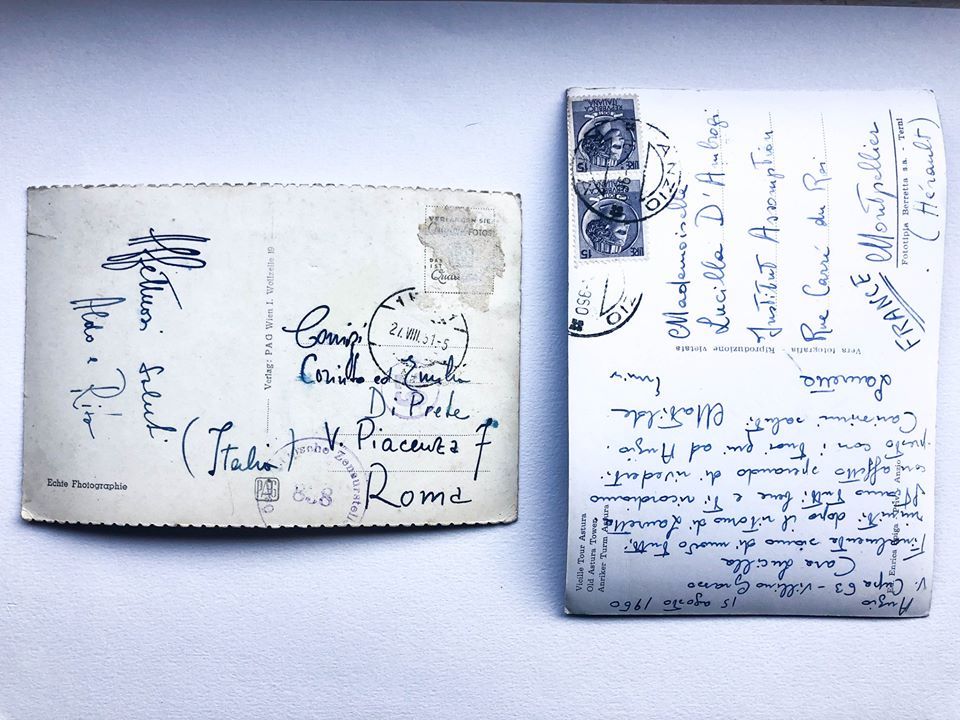 Affettuosi Saluti
Aldo e Rita
Verlag: PAG Wien I. Wollzeile 19
VERLANGEN SIE
FOTOS!
DAS
IST
27.VIII.51-5
Coniugi
Corinto ed Emilia
Di Prete
V. Piacenza 7
Roma
(Italia)
Österreichische Zensurstelle
PAG
Echte Fhotographie
REPUBBLICA
ITALIANA
LIRE 15
REPUBBLICA
ITALIANA
LIRE 15
ANZIO
Mademoiselle
Lucilla D'Ambrogi
Institut Assomption
Rue Carré du Roi
Montpellier
(Hérault)
FRANCE
Fototipia Berretta s.a. - Terni
Vera fotografia - Riproduzione vietata
Anzio 15 agosto 1960
V. Cupa 63 - Villino Grasso
Cara Lucilla
Finalmente siamo di nuovo tutti
riuniti dopo il ritorno di Lauretta.
Stiamo tutti bene e Ti ricordiamo
con affetto sperando di rivederti
presto con i tuoi qui ad Anzio.
Carissimi saluti
Matilde
Lauretta
Vieille Tour Astura
Old Astura Tower
Antiker Turm Astura